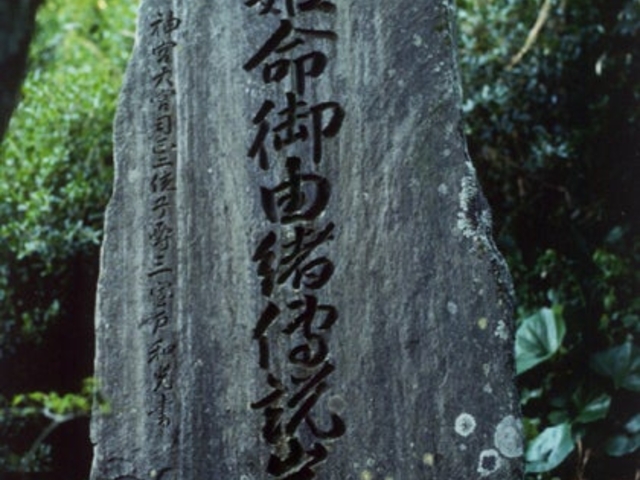 姫命御由緒傳説
神宮大宮司正三位子爵三室戸和光書